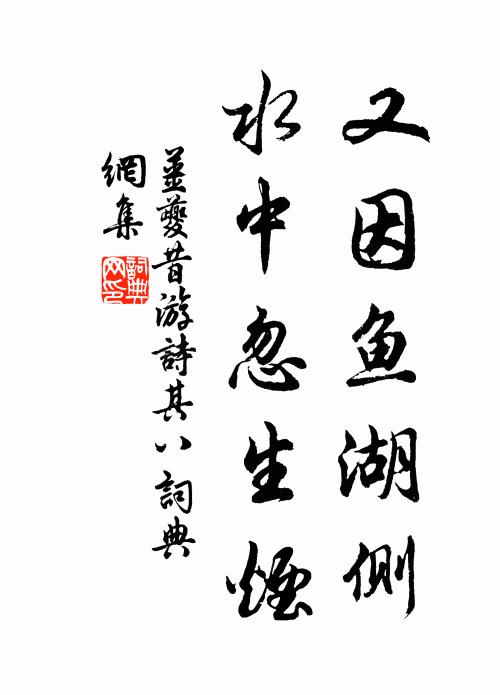 又因鱼湖侧
水中忽生煙
薑夔昔游詩其八 詞典
網集
詞典
网印